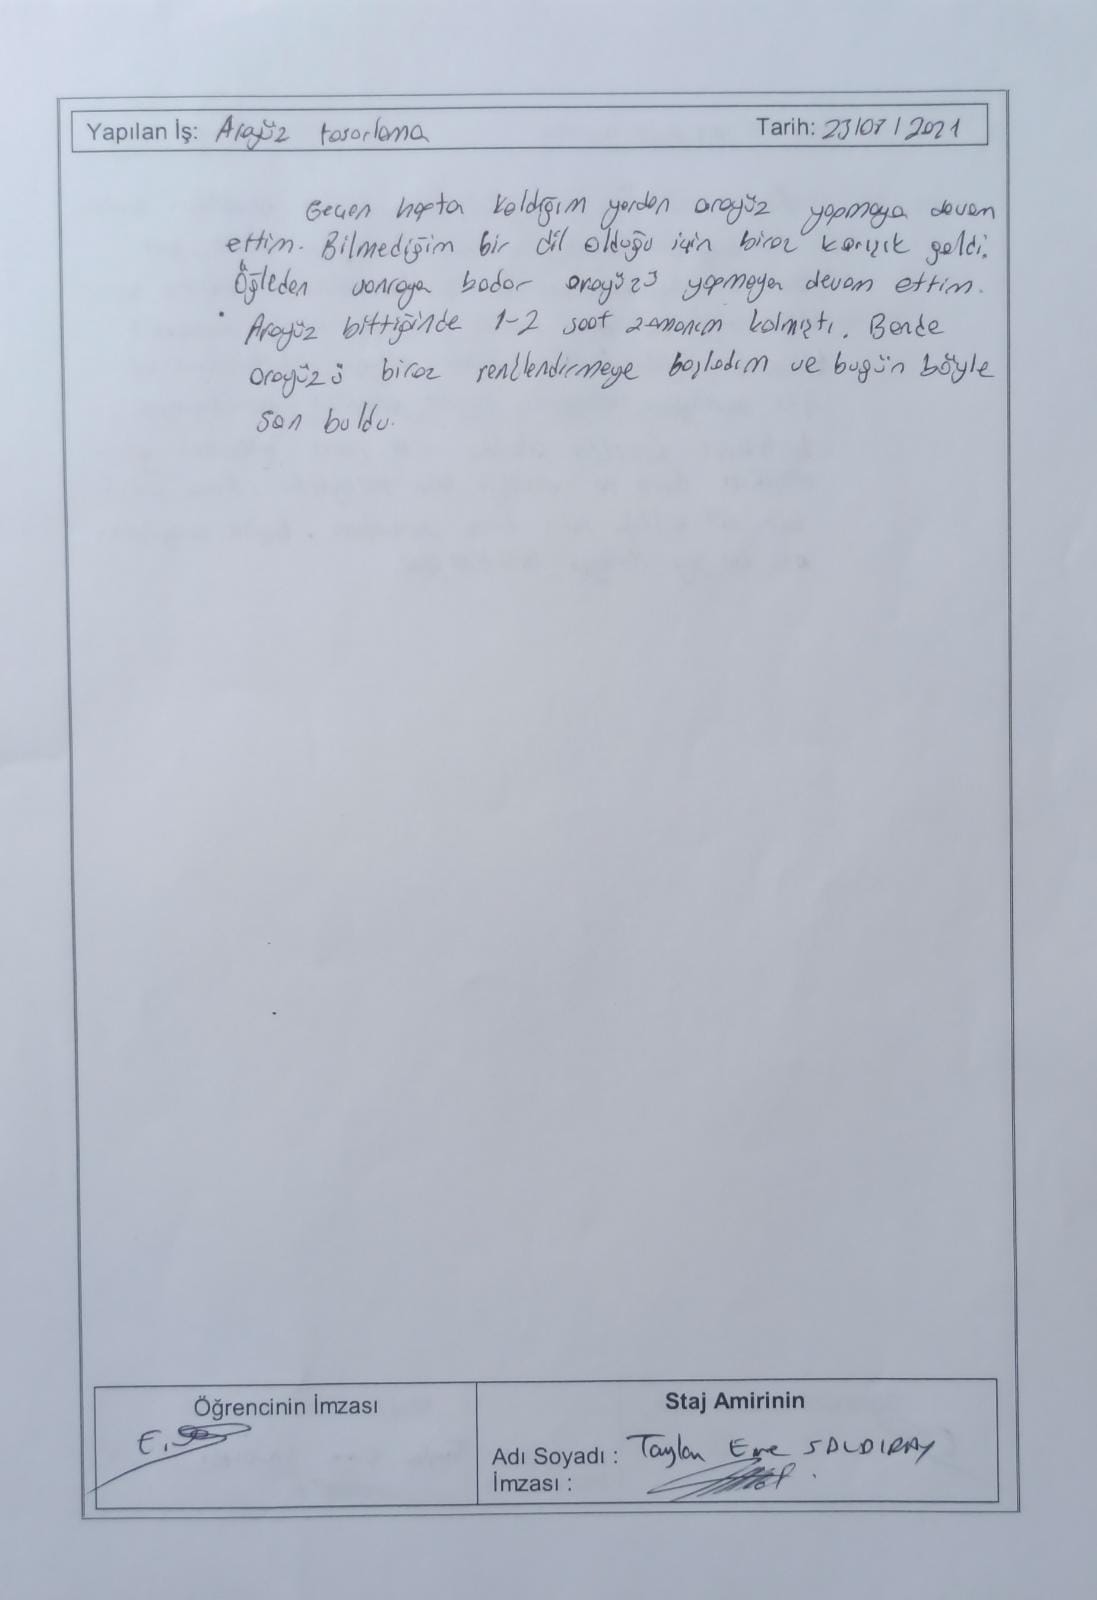 Yapılan İş: Arayüz tasarlama
Tarih: 23/07/2021
Geçen hafta kaldığım yerden arayüz yapmaya devam
ettim. Bilmediğim bir dil olduğu için biraz karışık geldi.
Öğleden sonraya kadar arayüzü yapmaya devam ettim.
Arayüz bittiğinde 1-2 saat zamanım kalmıştı. Bende
arayüzü biraz renklendirmeye başladım ve bugün böyle
son buldu.
Öğrencinin İmzası
Staj Amirinin
Adı Soyadı : Taylan Emre SALDIRAY
İmzası :